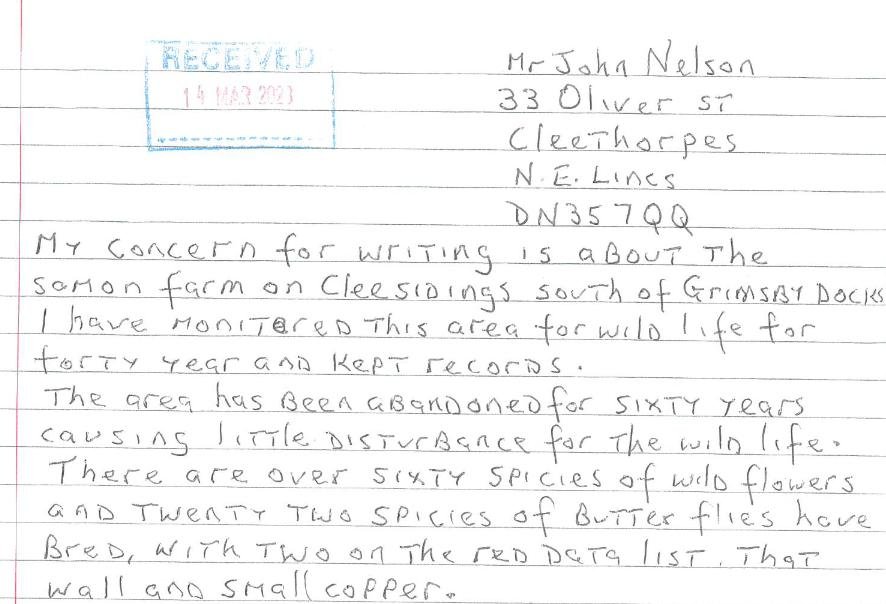 RECEIVED
14 MAR 2023
Mr John Nelson
33 Oliver ST
CleeThorpes
N.E. Lincs
DN35 7QQ
My concern for writing is aBout The
samon farm on Cleesidings south of Grimsby Docks
I have moniTered This area for wild life for
forty year and KepT records.
The area has Been aBandoned for sixty years
causing little DisturBance for The wild life.
There are over sixty spicies of wild flowers
and Twenty Two spicies of Butter flies have
Bred, with Two on The red Data list. That
wall and small copper.